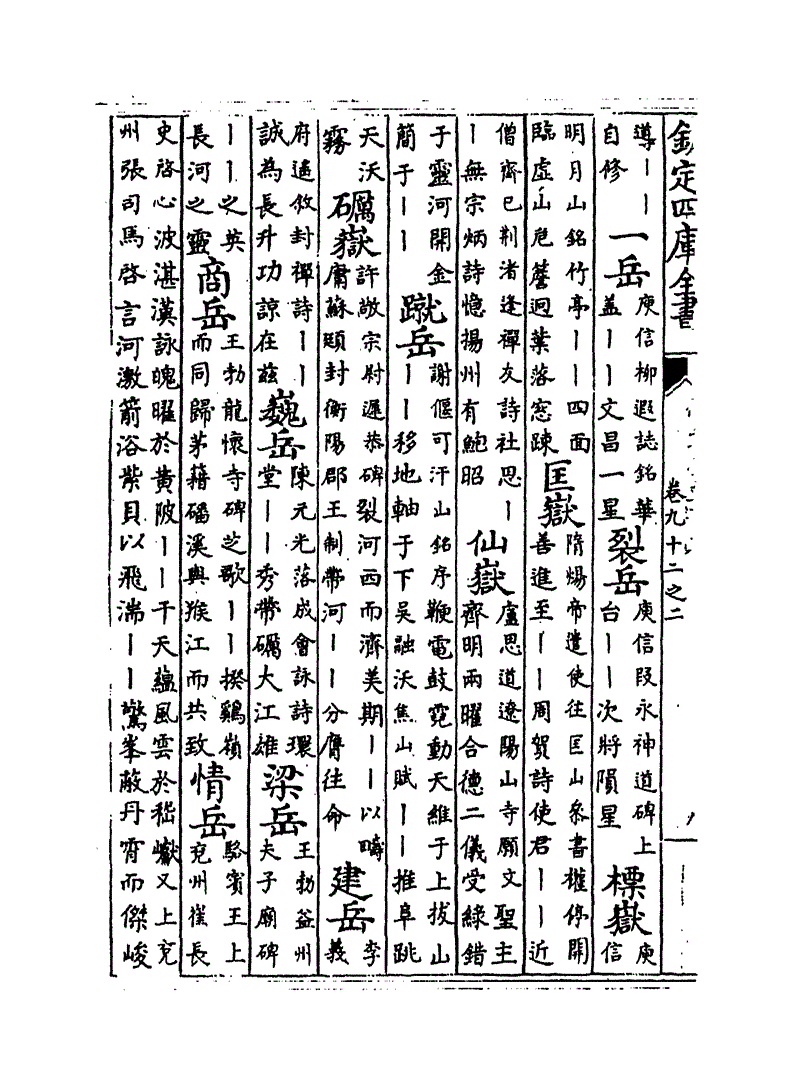 欽定四庫全書
卷九十二之二
導丨丨
自修
一岳
庾信柳遐誌銘華
蓋丨丨文昌一星
裂岳
庾信段永神道碑上
台丨丨次將隕星
標嶽
庾
信
明月山銘竹亭丨丨四面
臨虛山危簷迥葉落窓踈
匡嶽
隋煬帝遣使往匡山叅書權停開
善進至丨丨周賀詩使君丨丨近
僧齊已荆渚逢禪友詩社思丨
丨無宗炳詩憶揚州有鮑昭
仙嶽
盧思道遼陽山寺願文聖主
齊明兩曜合德二儀受綠錯
于靈河開金
簡于丨丨
蹴岳
謝偃可汗山銘序鞭電鼓霓動天維于上拔山
丨丨移地軸于下吳融沃焦山賦丨丨推阜跳
天沃
霧
礪嶽
許敬宗尉遲恭碑裂河西而濟美期丨丨以疇
庸蘇頲封衡陽郡王制帶河丨丨分膺往命
建岳
李
義
府遥敘封禪詩丨丨
誠為長升功諒在兹
巍岳
陳元光落成會詠詩環
堂丨丨秀帶礪大江雄
梁岳
王勃益州
夫子廟碑
丨丨之英
長河之靈
商岳
王勃龍懷寺碑芝歌丨丨揆鷄嶺
而同歸茅藉磻溪與猴江而共致
情岳
駱賓王上
兗州崔長
史啓心波湛漢詠魄曜於黄陂丨丨干天蘊風雲於嵇巘又上兗
州張司馬啓言河激箭浴紫貝以飛湍丨丨驚峯蔽丹霄而傑峻